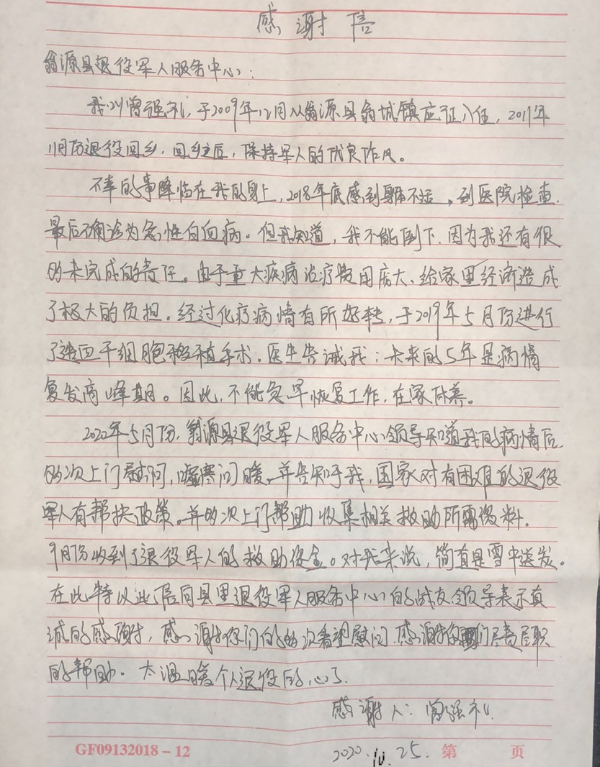 感谢信
翁源县退役军人服务中心:
我叫曾强礼,于2009年12月从翁源县翁城镇应征入伍,2011年
11月份退役回乡,回乡之后,保持军人的优良作风。
不幸的事降临在我的身上,2018年底感到身体不适,到医院检查,
最后确诊为急性白血病。但我知道,我不能倒下,因为我还有很
多未完成的责任。由于重大疾病治疗费用庞大,给家里经济造成
了极大的负担。经过化疗病情有所好转,于2019年5月份进行
了造血干细胞移植手术。医生告诫我:未来的5年是病情
复发高峰期。因此,不能急早恢复工作,在家休养。
2020年5月份,翁源县退役军人服务中心领导知道我的病情后
多次上门慰问,嘘寒问暖。并告知于我,国家对有困难的退役
军人有帮扶政策。并多次上门帮助收集相关救助所需资料。
9月份收到了退役军人的救助资金。对我来说,简直是雪中送炭。
在此特以此信向县里退役军人服务中心的战友领导表示真
诚的感谢,感谢你们的多次看望慰问,感谢你们尽责尽职
的帮助。太温暖个人退役的心了。
感谢人:曾强礼
2020.10.25.
GF09132018-12 第 页